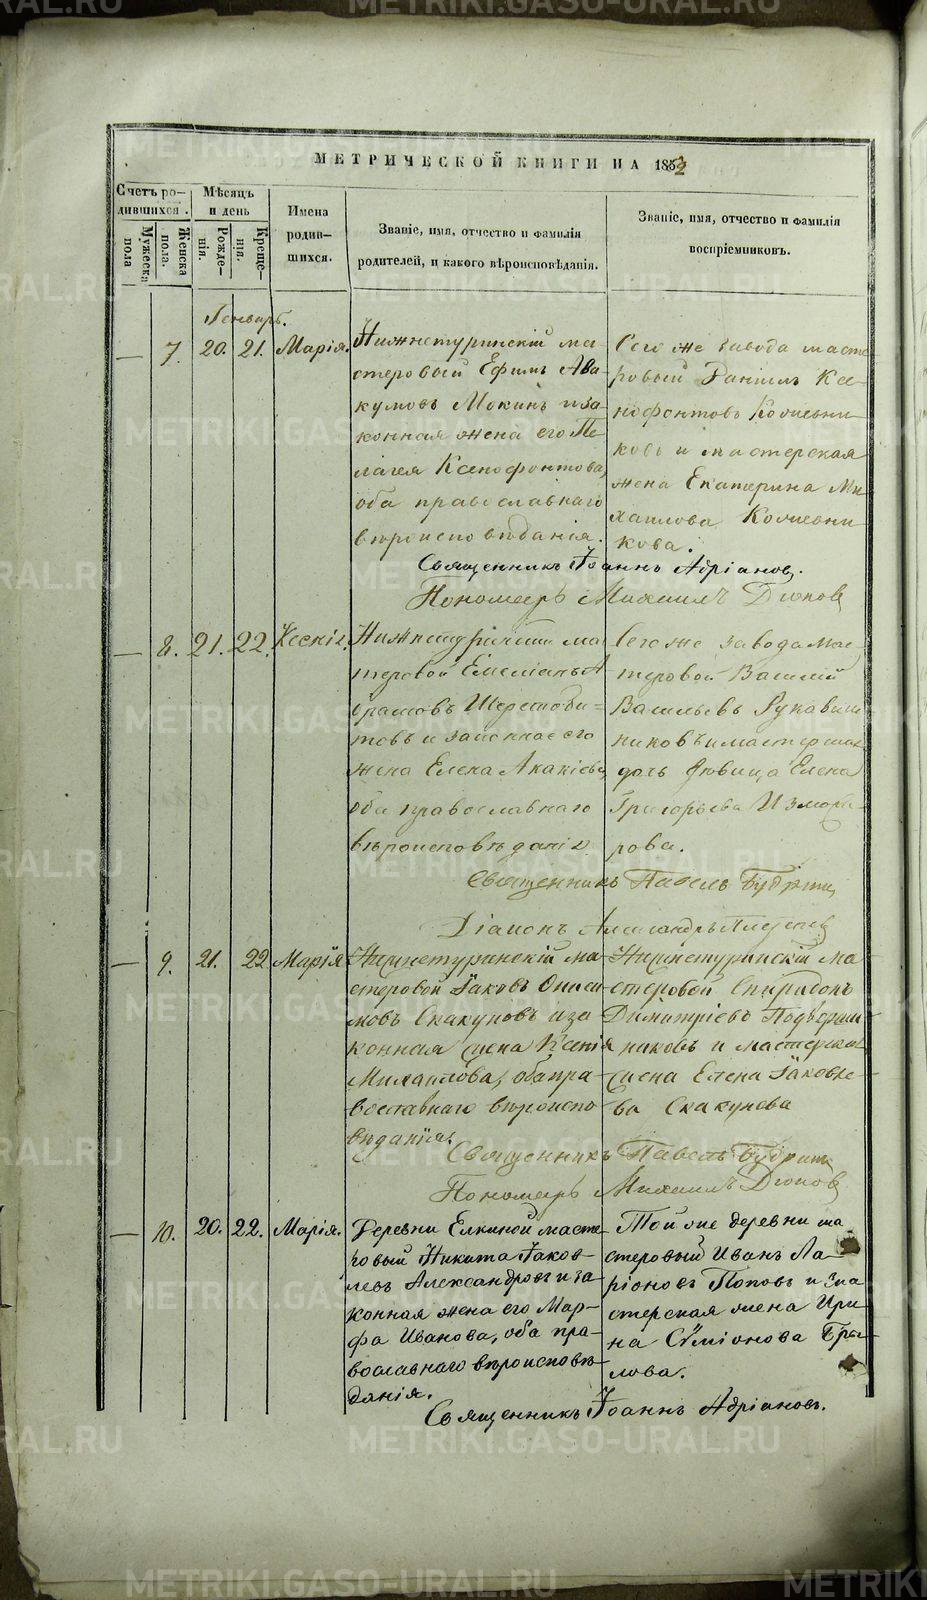 МЕТРИЧЕСКОЙ КНИГИ НА 1852
Счетъ ро-
дившихся.
Мужеска
пола
Женска
пола.
Мѣсяцъ
и день
Рожде-
нія.
Креще-
нія.
Имена
родив-
шихся.
Званіе, имя, отчество и фамилія
родителей, и какого вѣроисповѣданія.
Званіе, имя, отчество и фамилія
воспріемниковъ.
Генварь.
— 7. 20. 21. Марія.
Нижнетуринскій ма-
стеровый Ефимъ Ава-
кумовъ Мокинъ и за-
конная жена его Пе-
лагея Ксенофонтова,
оба православнаго
вѣроисповѣданія.
Сего же завода масте-
ровый Даніилъ Ксе-
нофонтовъ Кочевни-
ковъ и мастерская
жена Екатерина Ми-
хаилова Кочевни-
кова.
Священникъ Іоаннъ Адріановъ.
Пономарь Михаилъ Дюповъ
— 8. 21. 22.
мастеровой Емеліанъ А
врамовъ Шерстоби-
товъ и законная его
жена Елена Акакіева,
оба православнаго
вѣроисповѣданія
Сего же завода мас-
теровой Василій
Васильевъ Рукавиш
никовъ и мастерская
дочь дѣвица Елена
Григорьева Изможе-
рова.
Священникъ Павелъ Будринъ
Діаконъ Александръ
— 9. 21. 22 Марія
Нижнетуринскій ма-
стеровой Іаковъ Ониси-
мовъ Скакуновъ и за
конная жена Ксенія
Михаилова, оба пра-
вославнаго вѣроиспо-
вѣданія.
Нижнетуринскій ма-
стеровой Спиридонъ
Димитріевъ Подверши-
никовъ и мастерская
жена Елена Іаковле-
ва Скакунова
Священникъ Павелъ Будринъ
Пономарь Михаилъ Дюповъ
— 10. 20. 22. Марія.
Деревни Елкиной масте-
ровый Никита Іаков-
левъ Александровъ и за-
конная жена его Мар-
фа Иванова, оба пра-
вославнаго вѣроисповѣ-
данія.
Той же деревни ма-
стеровый Иванъ Ла-
ріоновъ Поповъ и ма-
стерская жена Ири-
на Сѵміонова
лова.
Священникъ Іоаннъ Адріановъ.
METRIKI.GASO-URAL.RU